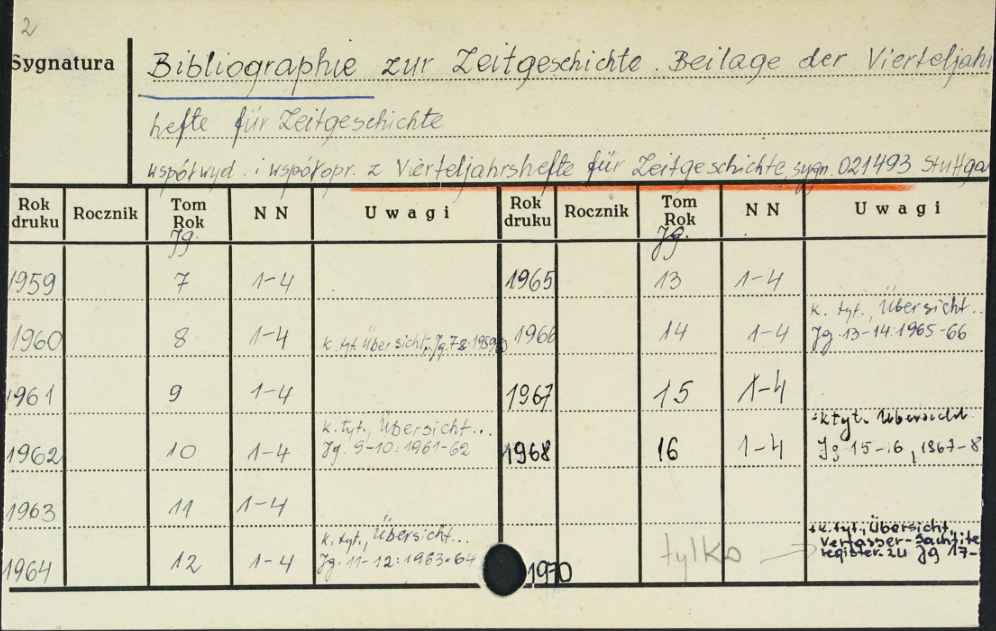 2
Sygnatura
Bibliographie zur Zeitgeschichte. Beilage der Vierteljahr
hefte für Zeitgeschichte
współwyd. i współopr. z Vierteljahrshefte für Zeitgeschichte, sygn. 021493 Stuttga
Rok druku Rocznik Tom Rok N N Uwagi Rok druku Rocznik Tom Rok N N Uwagi
Jg. Jg.
1959 7 1-4 1965 13 1-4
1960 8 1-4 k. tyt. Übersicht.. Jg. 7-8: 1959 1966 14 1-4 k. tyt., Übersicht.. Jg. 13-14: 1965-66
1961 9 1-4 1967 15 1-4
1962 10 1-4 k. tyt., Übersicht... Jg. 9-10: 1961-62 1968 16 1-4 +k tyt. Übersicht Jg 15-16, 1967-8
1963 11 1-4
1964 12 1-4 k. tyt., Übersicht... Jg. 11-12: 1963-64 1970 tylko +k. tyt., Übersicht, Verfasser-Sachtite register zu Jg 17-